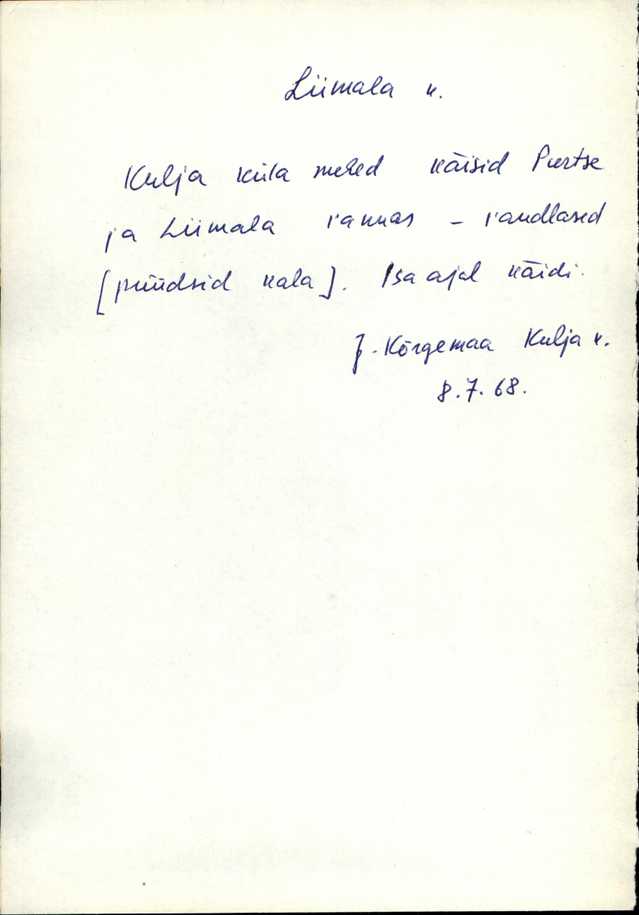 Liimala k.
Kulja küla mehed käisid Purtse
ja Liimala rannas – randlased
[püüdsid kala]. Isa ajal käidi.
J. Kõrgemaa Kulja k.
8.7.68.